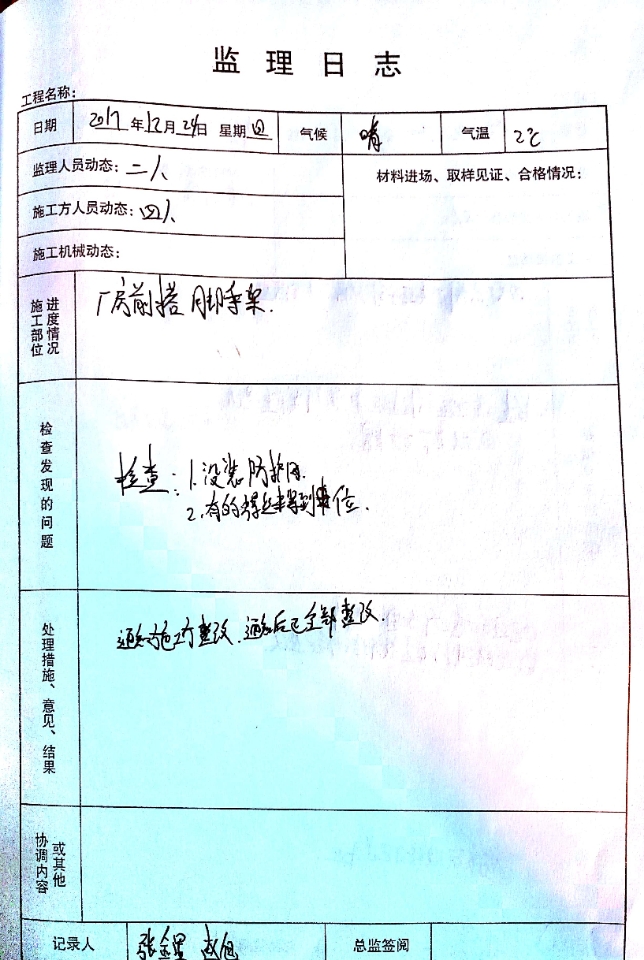 监理日志
工程名称:
日期 2017年12月24日 星期四 气候 晴 气温 2℃
监理人员动态: 二人 材料进场、取样见证、合格情况:
施工方人员动态: 四人
施工机械动态:
施工部位
进度情况
厂房前搭脚手架.
检查发现的问题
检查: 1.没装防护网.
2.有的 到 位.
处理措施、意见、结果
通知施工方整改.通知后已全部整改.
协调内容
或其他
记录人 张 总监签阅